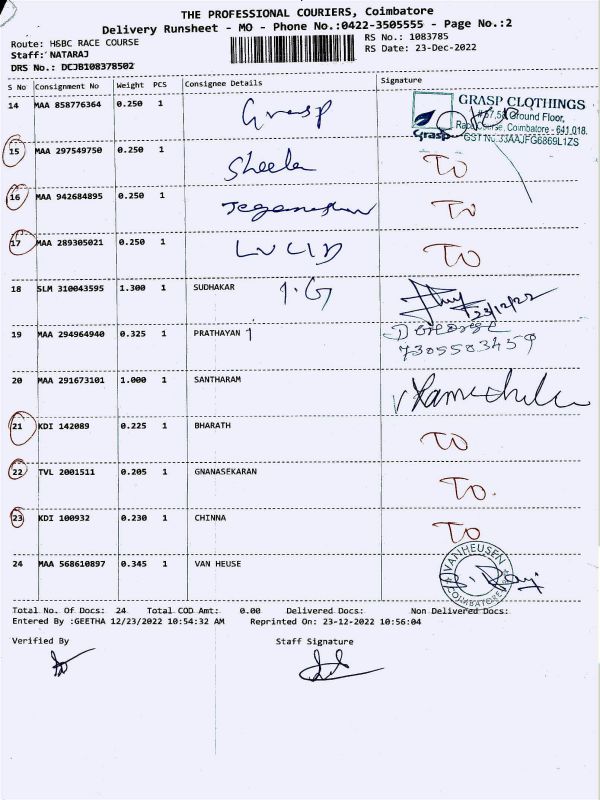 THE PROFESSIONAL COURIERS, Coimbatore
Delivery Runsheet - MO - Phone No.:0422-3505555 - Page No.:2
Route: H&BC RACE COURSE
RS No.: 1083785
Staff: NATARAJ
RS Date: 23-Dec-2022
DRS No.: DCJB108378502
S No Consignment No Weight PCS Consignee Details Signature
14 MAA 858776364 0.250 1 Grasp
GRASP CLOTHINGS
Ground Floor,
Race Course, Coimbatore - 641 018.
Grasp GST No.33AAJFG6869L1ZS
15 MAA 297549750 0.250 1 Sheela TO
16 MAA 942684895 0.250 1 TO
17 MAA 289305021 0.250 1 LUCID TO
18 SLM 310043595 1.300 1 SUDHAKAR 1.G 23/12/22
19 MAA 294964940 0.325 1 PRATHAYAN 1
7305583459
20 MAA 291673101 1.000 1 SANTHARAM
21 KDI 142089 0.225 1 BHARATH TO
22 TVL 2001511 0.205 1 GNANASEKARAN TO.
23 KDI 100932 0.230 1 CHINNA TO
24 MAA 568610897 0.345 1 VAN HEUSE VANHEUSEN COIMBATORE
Total No. Of Docs: 24 Total COD Amt: 0.00 Delivered Docs: Non Delivered Docs:
Entered By :GEETHA 12/23/2022 10:54:32 AM Reprinted On: 23-12-2022 10:56:04
Verified By Staff Signature